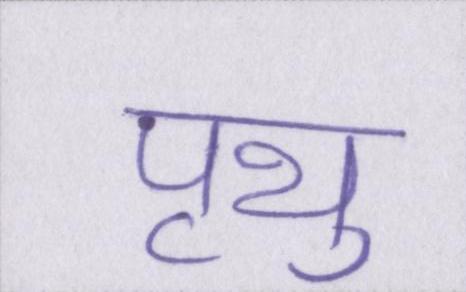 पृथु